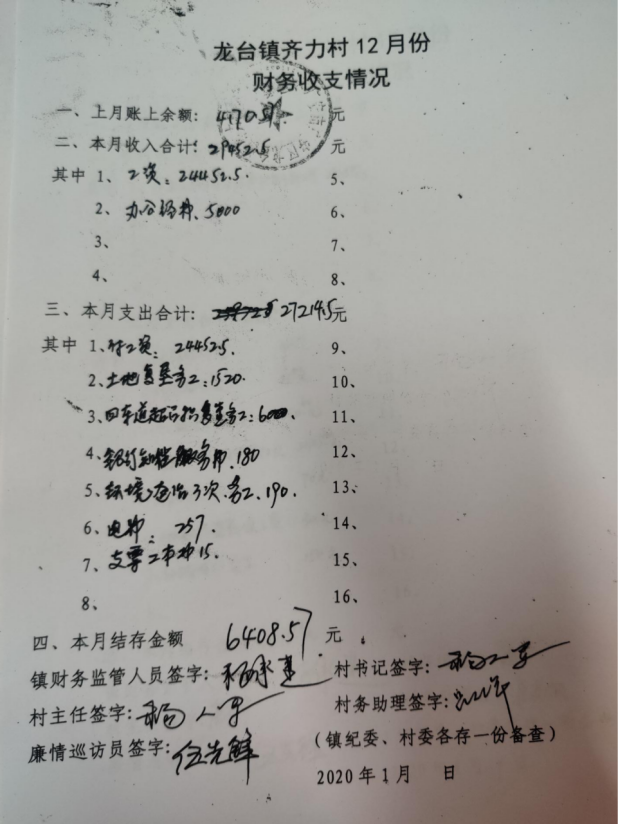 龙台镇齐力村12月份
财务收支情况
一、上月账上余额: 元
二、本月收入合计: 29452.5 元
其中 1、工资: 24452.5. 5、
2、办公经费、5000 6、
3、 7、
4、 8、
三、本月支出合计: 27214.5元
其中 1、付工资: 24452.5. 9、
2、土地复垦务工:1520. 10、
3、回车道起石复垦务工:600. 11、
4、银行服务费.180 12、
5、环境治3次.务工.190. 13、
6、电费: 257. 14、
7、支票工本费15. 15、
8、 16、
四、本月结存金额 6408.57 元
镇财务监管人员签字: 村书记签字:
村主任签字: 村务助理签字:
廉情巡访员签字: 伍先鲜 (镇纪委、村委各存一份备查)
2020年1月 日